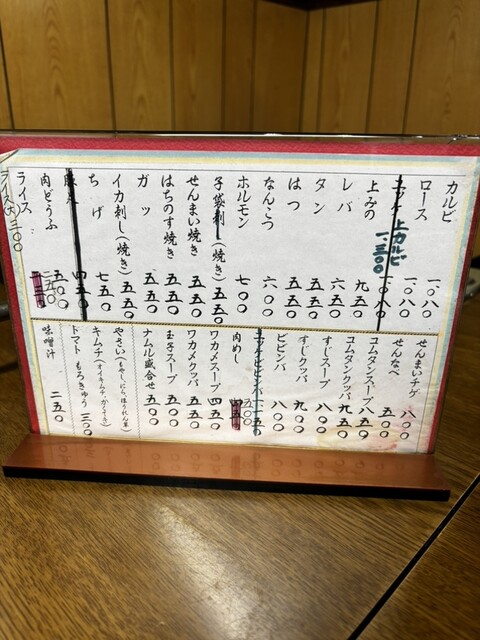 カルビ 一、〇八〇
ロース 一、〇八〇
上カルビ 一、三〇〇
上みの 九五〇
レバ 六五〇
タン 五五〇
はつ 五五〇
なんこつ 六〇〇
ホルモン 七〇〇
子袋刺し(焼き) 五五〇
せんまい焼き 五五〇
はちのす焼き 五五〇
ガツ 五五〇
イカ刺し(焼き) 五五〇
ちげ 七五〇
四五〇
肉どうふ 五〇〇
ライス 二五〇
ライス(大)三〇〇
せんまいチゲ 八〇〇
せんなべ 五〇〇
コムタンスープ 八五〇
コムタンクッパ 九五〇
すじスープ 八〇〇
すじクッパ 九〇〇
ビビンバ 八〇〇
肉めし 五〇〇
ワカメスープ 四五〇
ワカメクッパ 五五〇
玉子スープ 五〇〇
ナムル盛合せ 五五〇
やさい(もやし、にら、ほうれん草)
キムチ(オイキムチ、カクテキ)
トマト もろきゅう 三〇〇
味噌汁 二五〇